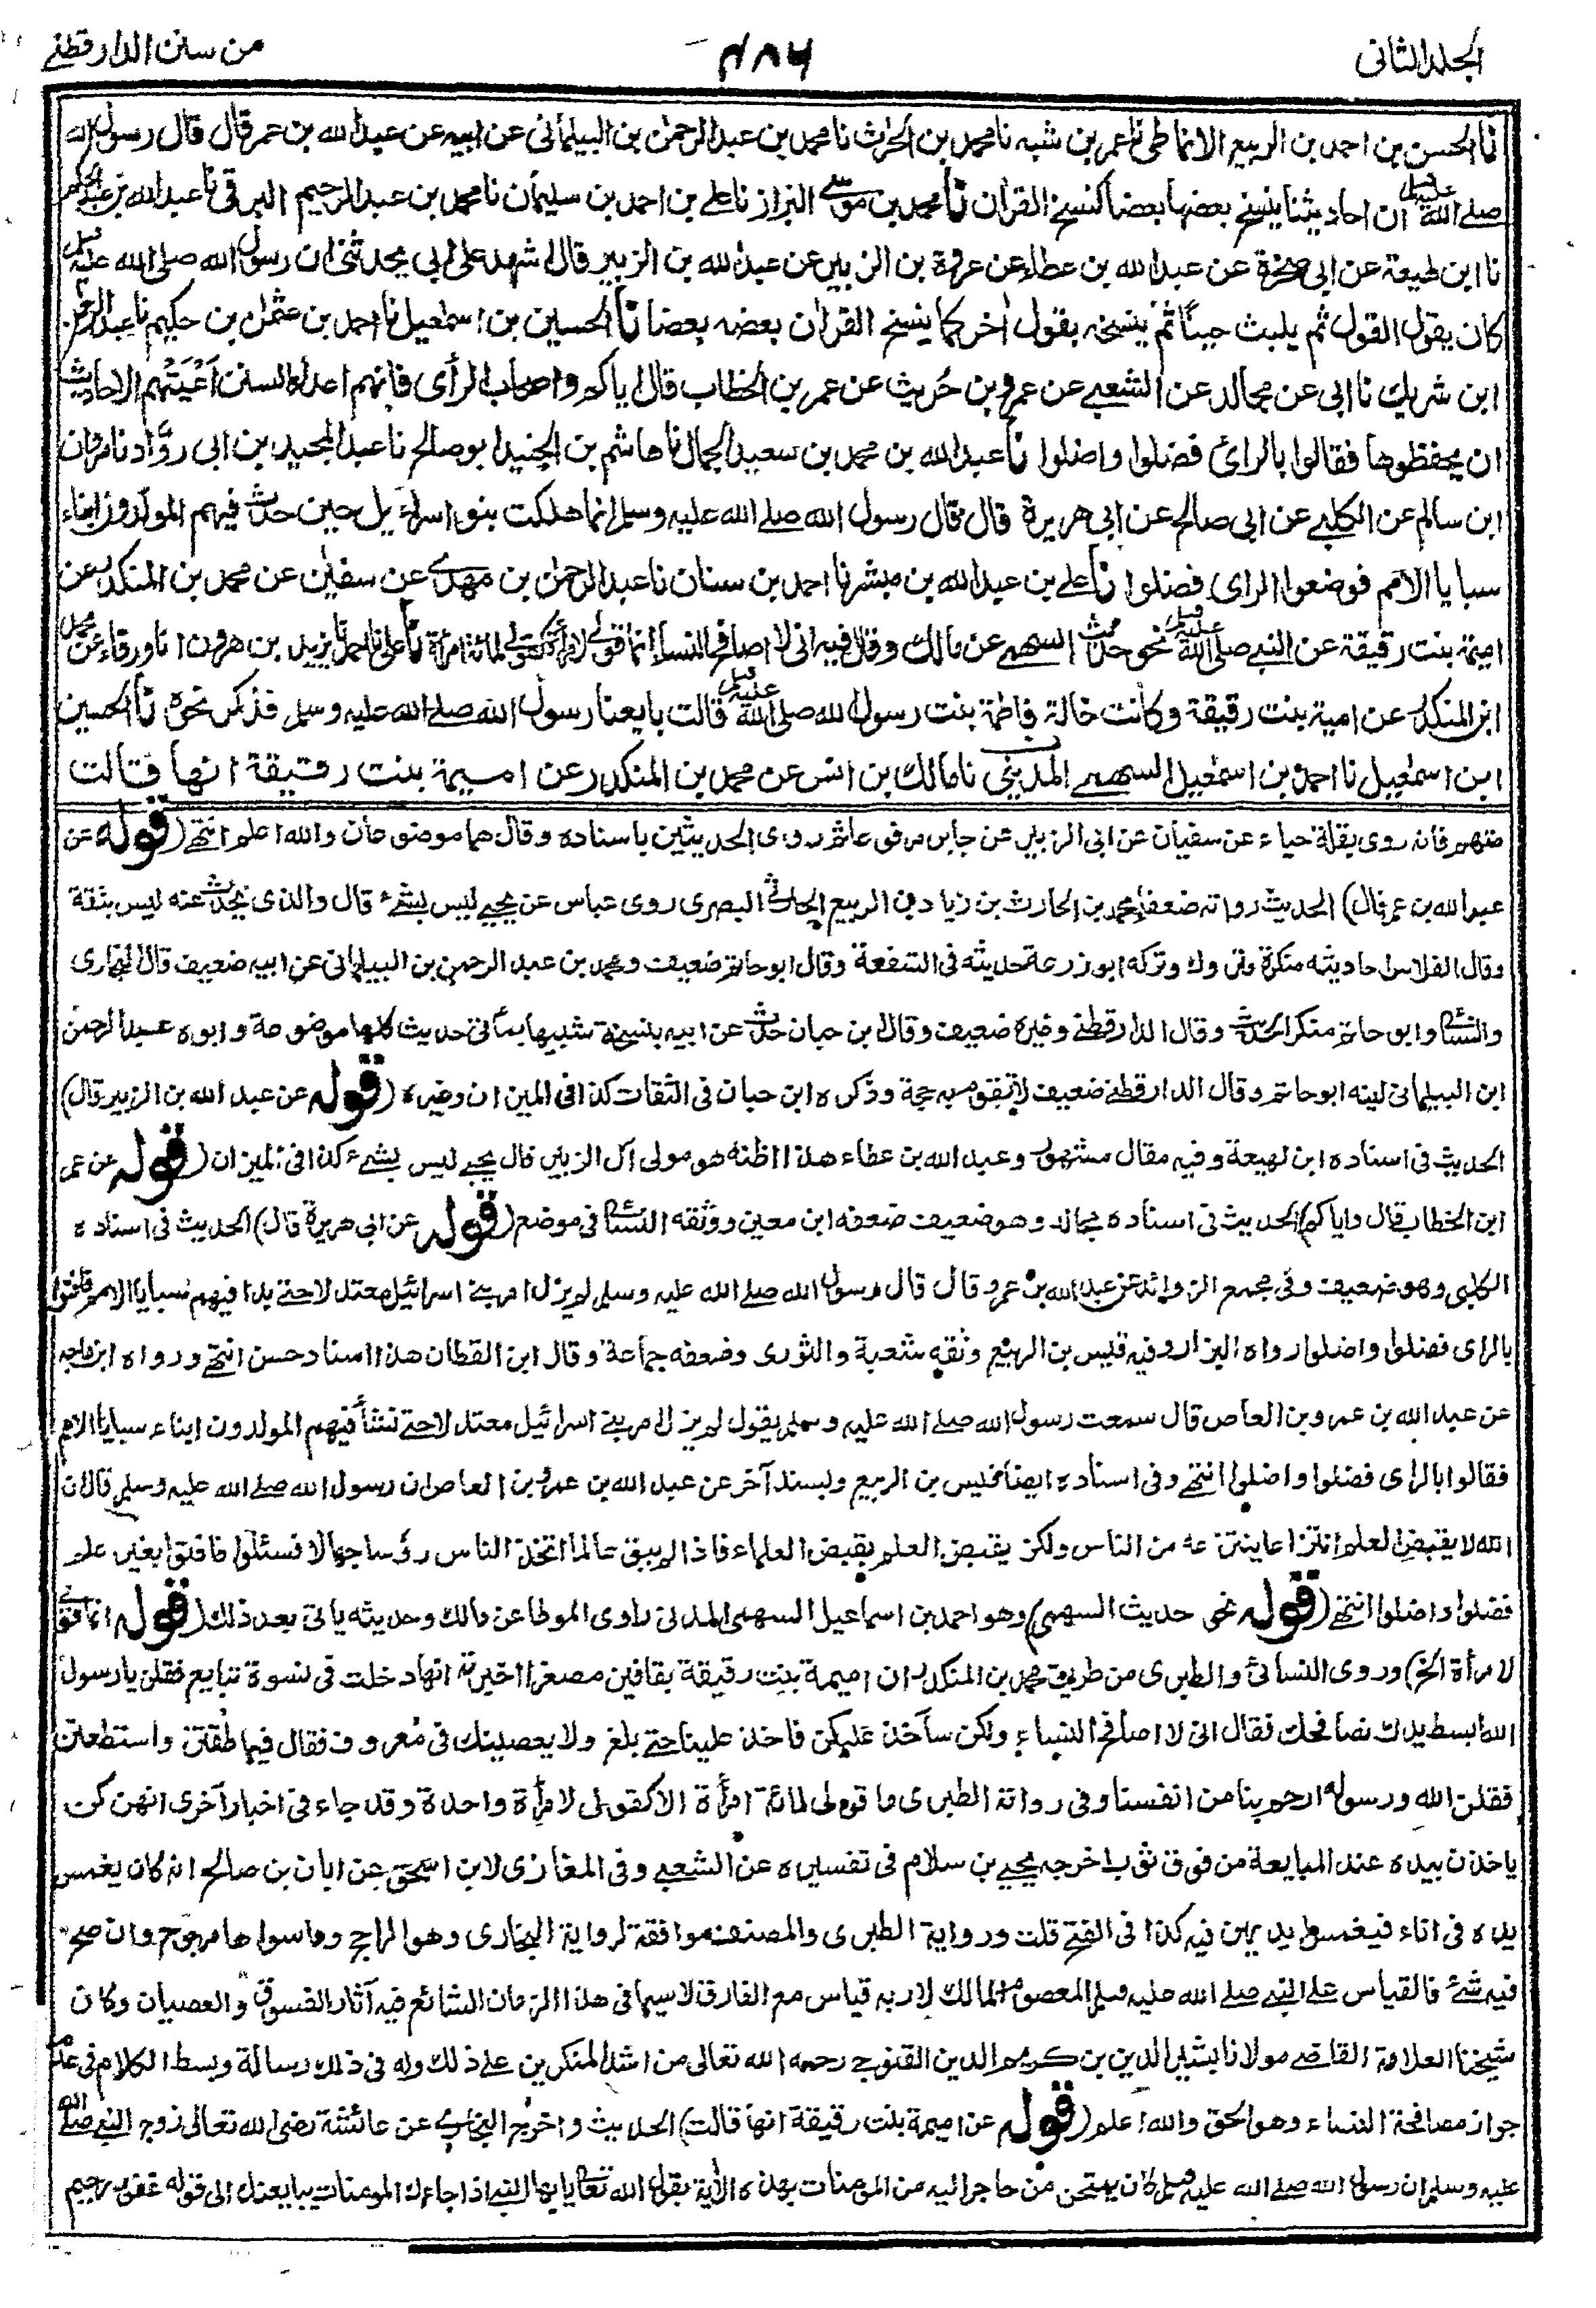 الجلد الثانى
۴۸۶
من سنن الدارقطنے
نا الحسن بن احمد بن الربيع الانماطى نا عمر بن شبه نا محمد بن الحرث نا محمد بن عبد الرحمن بن البيلمانى عن ابيه عن عبد الله بن عمر قال قال رسول الله
صلے الله عليه وسلم ان احاديثنا ينسخ بعضها بعضا كنسخ القران نا محمد بن موسى البزاز نا على بن احمد بن سليمان نا محمد بن عبد الرحيم البرقى نا عبد الله بن عبد الحكم
نا ابن لهيعة عن ابى صخرة عن عبد الله بن عطاء عن عروة بن الزبير عن عبد الله بن الزبير قال اشهد على ابى يحدثنى ان رسول الله صلى الله عليه وسلم
كان يقول القول ثم يلبث حينا ثم ينسخه بقول اخر كما ينسخ القران بعضه بعضا نا الحسين بن اسمعيل نا احمد بن عثمن بن حكيم نا عبد الرحمن
ابن شريك نا ابى عن مجالد عن الشعبے عن عمرو بن حُريث عن عمر بن الخطاب قال اياكم واصحاب الرأى فانهم اعداء السنن اَعْيَتْهم الاحاديث
ان يحفظوها فقالوا بالراى فضلوا واضلوا نا عبد الله بن محمد بن سعيد الجمال نا هاشم بن الجنيد ابو صالح نا عبد المجيد بن ابى روَّاد نا مروان
ابن سالم عن الكلبے عن ابى صالح عن ابى هريرة قال قال رسول الله صلے الله عليه وسلم انما هلكت بنو اسرائيل حين حدث فيهم المولدون ابناء
سبايا الامم فوضعوا الراى فضلوا نا على بن عبد الله بن مبشر نا احمد بن سنان نا عبد الرحمن بن مهدے عن سفين عن محمد بن المنكدر عن
اميمة بنت رقيقة عن النبے صلى الله عليه وسلم نحو حديث السهمے عن مالك وقال فيه انى لا اصافح النساء انما قولى لامرأة كقولى لمائة امرأة نا على نا احمد نا يزيد بن هرون انا ورقاء عن محمد
ابن المنكدر عن اميمة بنت رقيقة وكانت خالة فاطمة بنت رسول الله صلى الله عليه وسلم قالت بايعنا رسول الله صلے الله عليه وسلم فذكر نحوه نا الحسين
ابن اسمعيل نا احمد بن اسمعيل السهمے المدينى نا مالك بن انس عن محمد بن المنكدر عن اميمة بنت رقيقة انها قالت
منهم فانه روى بقلة حياء عن سفيان عن ابى الزبير عن جابر مرفوعا ثم روى الحديثين باسناده وقال هما موضوعان والله اعلم انتهے (قوله عن
عبد الله بن عمر قال) الحديث رواته ضعفاء محمد بن الحارث بن زياد بن الربيع الحارثى البصرى روى عباس عن يحيے ليس بشئ قال والذى يحدث عنه ليس بثقة
وقال الفلاس احاديثه منكرة متروك وتركه ابو زرعة حديثه فى الشفعة وقال ابو حاتم ضعيف ومحمد بن عبد الرحمن بن البيلمانى عن ابيه ضعيف قال البخارى
والنسائى وابو حاتم منكر الحديث وقال الدارقطنے وغيره ضعيف وقال ابن حبان حدث عن ابيه بنسخة شبيها بمائتى حديث كلها موضوعة وابوه عبد الرحمن
ابن البيلمانى لينه ابو حاتم وقال الدارقطنے ضعيف لا تقوم به حجة وذكره ابن حبان فى الثقات كذا فى الميزان وغيره (قوله عن عبد الله بن الزبير قال)
الحديث فى اسناده ابن لهيعة وفيه مقال مشهور وعبد الله بن عطاء هذا اظنه هو مولى ال الزبير قال يحيے ليس بشئ كذا فى الميزان (قوله عن عمر
ابن الخطاب قال واياكم) الحديث فى اسناده مجالد وهو ضعيف ضعفه ابن معين ووثقه النسائى فى موضع (قوله عن ابى هريرة قال) الحديث فى اسناده
الكلبى وهو ضعيف وفى مجمع الزوائد عن عبد الله بن عمرو قال قال رسول الله صلے الله عليه وسلم لم يزل امر بنے اسرائيل معتدلا حتے بدا فيهم سبايا الامم فافتوا
بالراى فضلوا واضلوا رواه البزار وفيه قيس بن الربيع وثقه شعبة والثورى وضعفه جماعة وقال ابن القطان هذا اسناد حسن انتهے ورواه ابن ماجه
عن عبد الله بن عمرو بن العاص قال سمعت رسول الله صلے الله عليه وسلم يقول لم يزل امر بنے اسرائيل معتدلا حتے نشأ فيهم المولدون ابناء سبايا الامم
فقالوا بالراى فضلوا واضلوا انتهے وفى اسناده ايضا قيس بن الربيع وبسند آخر عن عبد الله بن عمرو بن العاص ان رسول الله صلے الله عليه وسلم قال ان
الله لا يقبض العلم انتزاعا ينتزعه من الناس ولكن يقبض العلم بقبض العلماء فاذا لم يبق عالما اتخذ الناس رؤسا جهالا فسئلوا فافتوا بغير علم
فضلوا واضلوا انتهے (قوله نحو حديث السهمى) وهو احمد بن اسماعيل السهمى المدنى راوى الموطا عن مالك وحديثه ياتى بعد ذلك (قوله انما قولى
لامرأة الخ) وروى النسائى والطبرى من طريق محمد بن المنكدر ان اميمة بنت رقيقة بقافين مصغرا اخبرته انها دخلت فى نسوة تبايع فقلن يا رسول
الله ابسط يدك نصافحك فقال انى لا اصافح النساء ولكن سآخذ عليكن فاخذ علينا حتے بلغ ولا يعصينك فى معروف فقال فيما طقتن واستطعتن
فقلن الله ورسوله ارحم بنا من انفسنا وفى رواية الطبرى ما قولى لمائة امرأة الا كقولى لامرأة واحدة وقد جاء فى اخبار اخرى انهن كن
ياخذن بيده عند المبايعة من فوق ثوب اخرجه يحيے بن سلام فى تفسيره عن الشعبے وفى المغازى لابن اسحق عن ابان بن صالح انه كان يغمس
يده فى اناء فيغمسن ايديهن فيه كذا فى الفتح قلت ورواية الطبرى والمصنف موافقة لرواية البخارى وهو الراجح وما سواها مرجوح وان صح
فيه شئ فالقياس على النبے صلے الله عليه وسلم المعصوم المالك لاربه قياس مع الفارق لا سيما فى هذا الزمان الشائع فيه آثار الفسوق والعصيان وكان
شيخنا العلامة القاضے مولانا بشير الدين بن كريم الدين القنوجے رحمه الله تعالى من اشد المنكرين على ذلك وله فى ذلك رسالة وبسط الكلام فى عدم
جواز مصافحة النساء وهو الحق والله اعلم (قوله عن اميمة بنت رقيقة انها قالت) الحديث واخرج البخارے عن عائشة رضى الله تعالى زوج النبے صلے الله
عليه وسلم ان رسول الله صلے الله عليه وسلم كان يمتحن من هاجر اليه من المؤمنات بهذه الآية بقول الله تعالى يايها النبے اذا جاءك المؤمنات يبايعنك الى قوله غفور رحيم